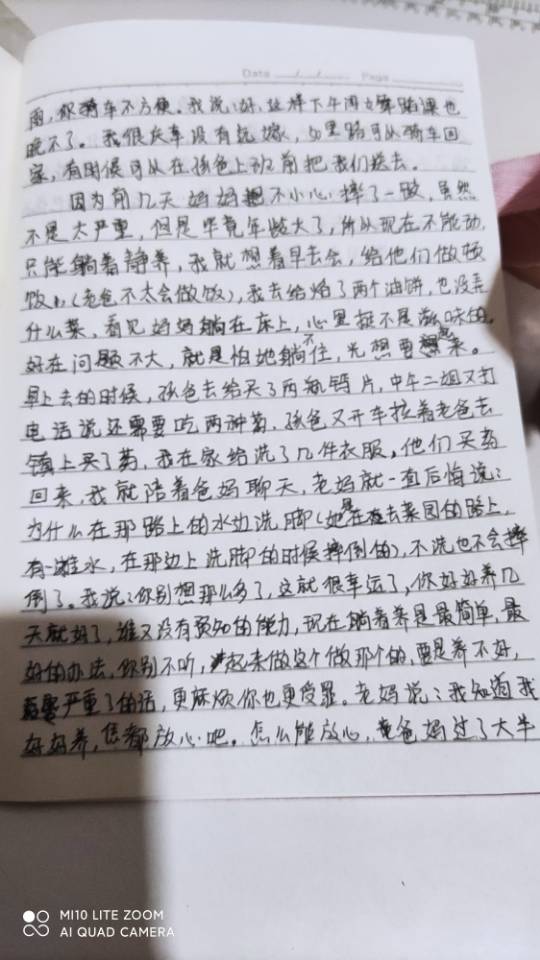 Date Page
雨,你骑车不方便。我说:好,这样下午再去舞蹈课也
晚不了。我很庆幸没有远嫁,50里路可以骑车回
家,有时候可以在孩爸上班前把我们送去。
因为前几天妈妈不小心摔了一跤,虽然
不是太严重,但是毕竟年龄大了,所以现在不能动,
只能躺着静养,我就想着早去会,给他们做顿
饭,(老爸不太会做饭),我去给烙了两个油饼,也没弄
什么菜,看见妈妈躺在床上,心里挺不是滋味的。
好在问题不大,就是怕她躺不住,光想要起来。
早上去的时候,孩爸去给买了两瓶钙片,中午二姐又打
电话说还需要吃两种药,孩爸又开车拉着老爸去
镇上买了药,我在家给洗了几件衣服,他们买药
回来,我就陪着爸妈聊天,老妈就一直后悔说:
为什么在那路上的水边洗脚(她是在去菜园的路上,
有一滩水,在那边上洗脚的时候摔倒的),不洗也不会摔
倒了。我说:你别想那么多了,这就很幸运了,你好好养几
天就好了,谁又没有预知的能力,现在躺着养是最简单,最
好的办法,你别不听,起来做这个做那个的,要是养不好,
严重了的话,更麻烦你也更受罪。老妈说:我知道我
好好养,恁都放心吧。怎么能放心,老爸妈过了大半
MI10 LITE ZOOM
AI QUAD CAMERA